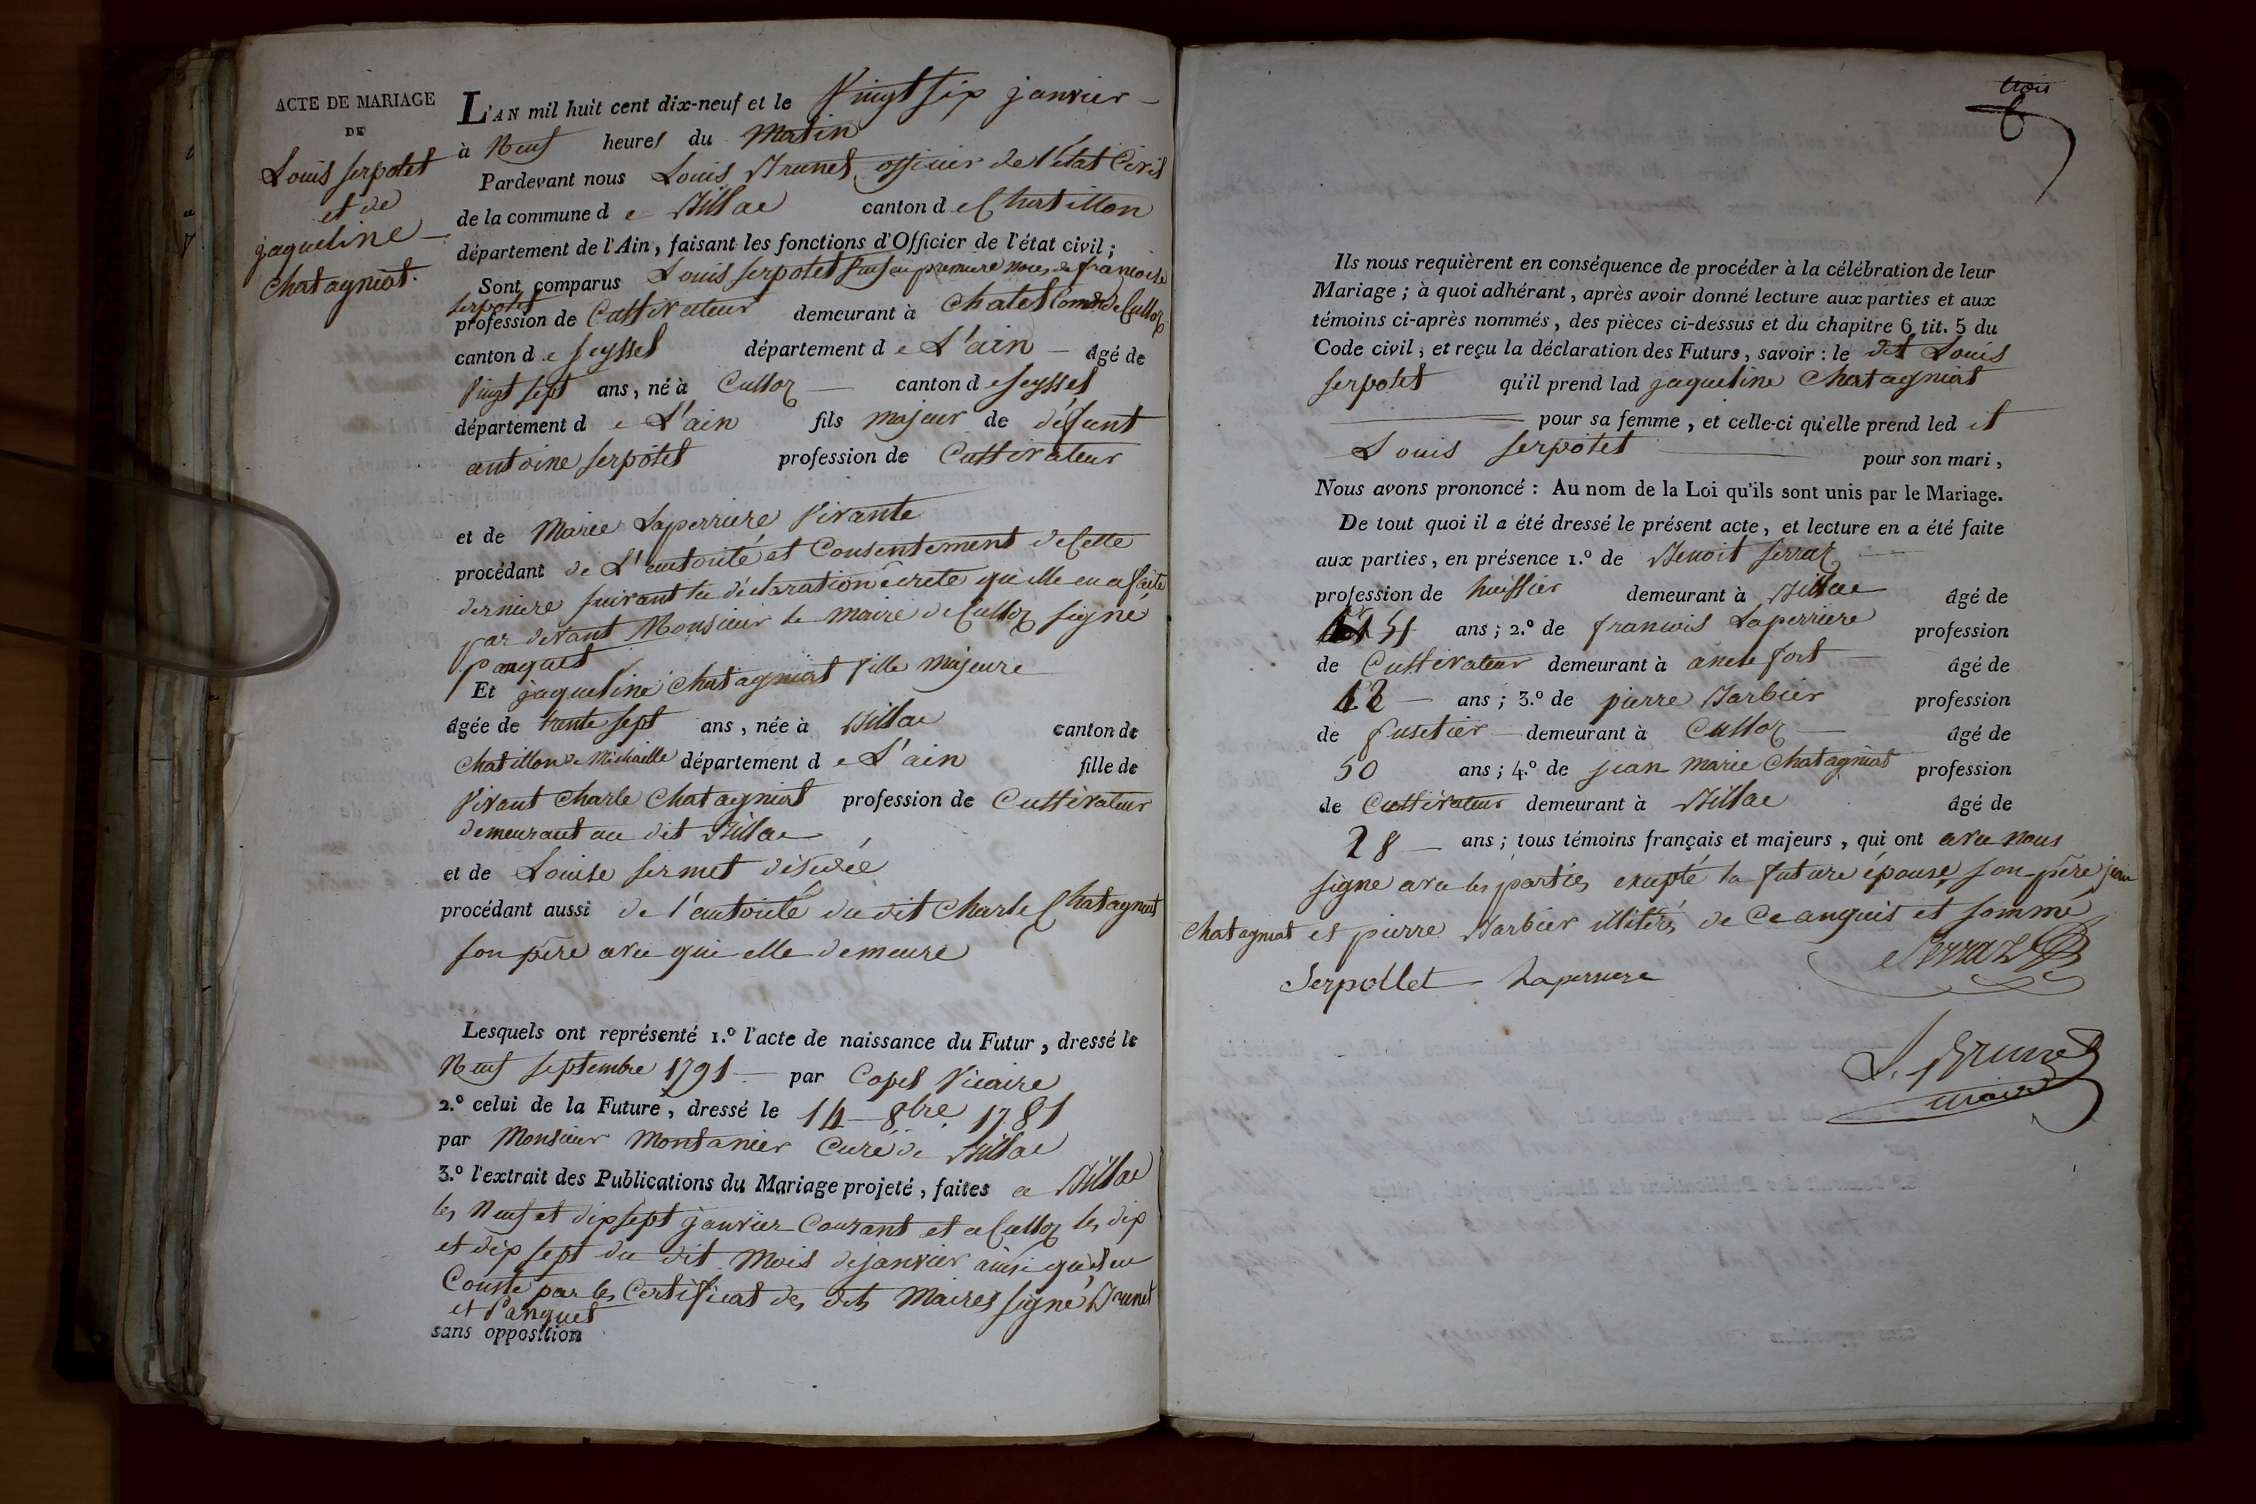 ACTE DE MARIAGE
DE
Louis serpotet
et de
jaqueline
Chatagniat.
L'AN mil huit cent dix-neuf et le Vingt six janvier
à Neuf heures du Matin
Pardevant nous Louis Brunet officier de l'état Civil
de la commune d e Billiac canton d e Chatillon
département de l'Ain, faisant les fonctions d'Officier de l'état civil ;
Sont comparus Louis serpotet Veuf en premiere noces de francoise
serpotet
profession de Cultivateur demeurant à Chatel Comm de Culloz
canton d e seyssel département d e L'ain âgé de
Vingt sept ans, né à Culloz canton d e seyssel
département d e L'ain fils majeur de défunt
antoine serpotet profession de Cultivateur
et de Marie Laperriere Vivante
procédant de L'autorité et Consentement de Cette
derniere suivant la déclaration écrete qu'elle en a faite
par devant Monsieur le maire de Culloz signé
panguet
Et jaqueline Chatagniat fille majeure
âgée de trente sept ans, née à Billiac canton de
Chatillon de Michaille département d e L'ain fille de
Vivant Charle Chatagniat profession de Cultivateur
demeurant au dit Billiac
et de Louise sermet décédée
procédant aussi de l'autorité du dit Charle Chatagniat
son père avec qui elle demeure
Lesquels ont représenté 1.º l'acte de naissance du Futur, dressé le
Neuf septembre 1791 par Copel Vicaire
2.º celui de la Future, dressé le 14 8bre 1781
par Monsieur Montanier Curé de Billiac
3.º l'extrait des Publications du Mariage projeté, faites a Billiac
les Neuf et dix sept janvier Courant et a Culloz les dix
et dix sept du dit Mois de janvier ainsi qu'il en
Conste par les Certificat des dits Maires signé Brunet
et Panguet
sans opposition
trois
6
Ils nous requièrent en conséquence de procéder à la célébration de leur
Mariage ; à quoi adhérant, après avoir donné lecture aux parties et aux
témoins ci-après nommés, des pièces ci-dessus et du chapitre 6 tit. 5 du
Code civil, et reçu la déclaration des Futurs, savoir : le dit Louis
serpotet qu'il prend lad jaqueline Chatagniat
pour sa femme, et celle-ci qu'elle prend led it
Louis serpotet pour son mari,
Nous avons prononcé : Au nom de la Loi qu'ils sont unis par le Mariage.
De tout quoi il a été dressé le présent acte, et lecture en a été faite
aux parties, en présence 1.º de Benoit serraz
profession de huissier demeurant à Billiac âgé de
51 ans ; 2.º de francois Laperriere profession
de Cultivateur demeurant à anclefort âgé de
42 ans ; 3.º de pierre Barbier profession
de fusetier demeurant à Culloz âgé de
50 ans ; 4.º de jean marie Chatagniat profession
de Cultivateur demeurant à Billiac âgé de
28 ans ; tous témoins français et majeurs, qui ont avec nous
signe avec les parties excepté la future épouse, son père jean
Chatagniat et pierre Barbier illiterés de Ce anquis et sommé
Serraz
Serpollet Laperriere
L. Brunet
maire